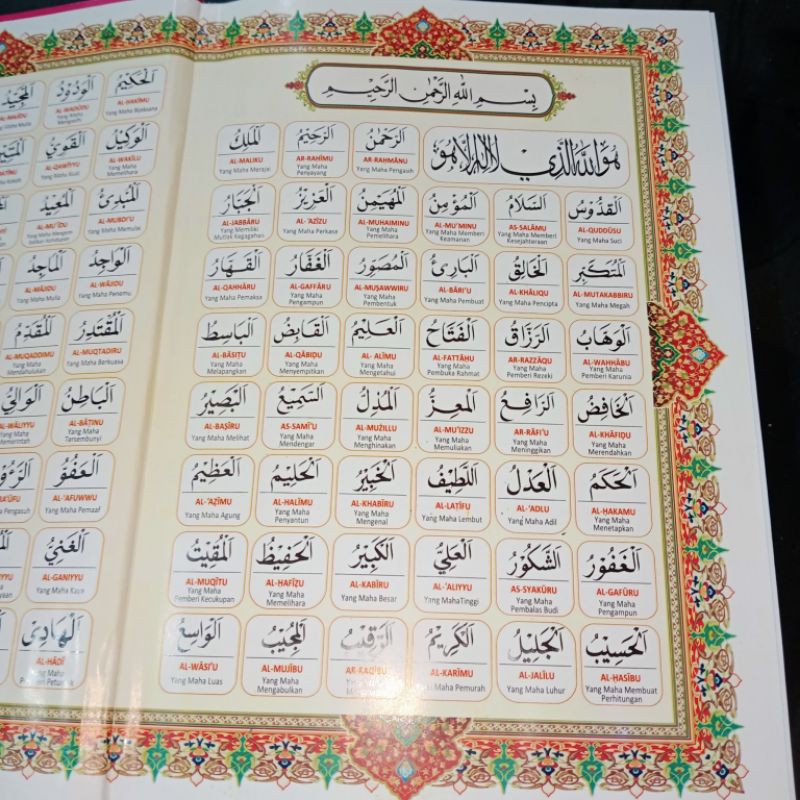 بِسْمِ اللهِ الرَّحْمٰنِ الرَّحِيْمِ
هُوَ اللهُ الَّذِيْ لَا إِلٰهَ إِلَّا هُوَ
اَلرَّحْمٰنُ
AR-RAHMĀNU
Yang Maha Pengasih
اَلرَّحِيْمُ
AR-RAHĪMU
Yang Maha
Penyayang
اَلْمَلِكُ
AL-MALIKU
Yang Maha Merajai
اَلْقُدُّوْسُ
AL-QUDDŪSU
Yang Maha Suci
اَلسَّلَامُ
AS-SALĀMU
Yang Maha Memberi
Kesejahteraan
اَلْمُؤْمِنُ
AL-MU'MINU
Yang Maha Memberi
Keamanan
اَلْمُهَيْمِنُ
AL-MUHAIMINU
Yang Maha
Pemelihara
اَلْعَزِيْزُ
AL-'AZĪZU
Yang Maha Perkasa
اَلْجَبَّارُ
AL-JABBĀRU
Yang Memiliki
Mutlak Kegagahan
اَلْمُتَكَبِّرُ
AL-MUTAKABBIRU
Yang Maha Megah
اَلْخَالِقُ
AL-KHĀLIQU
Yang Maha Pencipta
اَلْبَارِئُ
AL-BĀRI'U
Yang Maha Pembuat
اَلْمُصَوِّرُ
AL-MUṢAWWIRU
Yang Maha
Pembentuk
اَلْغَفَّارُ
AL-GAFFĀRU
Yang Maha
Pengampun
اَلْقَهَّارُ
AL-QAHHĀRU
Yang Maha Pemaksa
اَلْوَهَّابُ
AL-WAHHĀBU
Yang Maha
Pemberi Karunia
اَلرَّزَّاقُ
AR-RAZZĀQU
Yang Maha
Pemberi Rezeki
اَلْفَتَّاحُ
AL-FATTĀHU
Yang Maha
Pembuka Rahmat
اَلْعَلِيْمُ
AL- ALĪMU
Yang Maha
Mengetahui
اَلْقَابِضُ
AL-QĀBIḌU
Yang Maha
Menyempitkan
اَلْبَاسِطُ
AL-BĀSIṬU
Yang Maha
Melapangkan
اَلْخَافِضُ
AL-KHĀFIḌU
Yang Maha
Merendahkan
اَلرَّافِعُ
AR-RĀFI'U
Yang Maha
Meninggikan
اَلْمُعِزُّ
AL-MU'IZZU
Yang Maha
Memuliakan
اَلْمُذِلُّ
AL-MUŻILLU
Yang Maha
Menghinakan
اَلسَّمِيْعُ
AS-SAMI'U
Yang Maha
Mendengar
اَلْبَصِيْرُ
AL-BAṢĪRU
Yang Maha Melihat
اَلْحَكَمُ
AL-HAKAMU
Yang Maha
Menetapkan
اَلْعَدْلُ
AL-'ADLU
Yang Maha Adil
اَللَّطِيْفُ
AL-LAṬĪFU
Yang Maha Lembut
اَلْخَبِيْرُ
AL-KHABĪRU
Yang Maha
Mengenal
اَلْحَلِيْمُ
AL-HALĪMU
Yang Maha
Penyantun
اَلْعَظِيْمُ
AL-'AẒĪMU
Yang Maha Agung
اَلْغَفُوْرُ
AL-GAFŪRU
Yang Maha
Pengampun
اَلشَّكُوْرُ
AS-SYAKŪRU
Yang Maha
Pembalas Budi
اَلْعَلِيُّ
AL-'ALIYYU
Yang MahaTinggi
اَلْكَبِيْرُ
AL-KABĪRU
Yang Maha Besar
اَلْحَفِيْظُ
AL-HAFĪẒU
Yang Maha
Memelihara
اَلْمُقِيْتُ
AL-MUQĪTU
Yang Maha
Pemberi Kecukupan
اَلْحَسِيْبُ
AL-HASĪBU
Yang Maha Membuat
Perhitungan
اَلْجَلِيْلُ
AL-JALĪLU
Yang Maha Luhur
اَلْكَرِيْمُ
AL-KARĪMU
Maha Pemurah
اَلرَّقِيْبُ
AR-RAQĪBU
Yang Maha
اَلْمُجِيْبُ
AL-MUJĪBU
Yang Maha
Mengabulkan
اَلْوَاسِعُ
AL-WĀSI'U
Yang Maha Luas
اَلْحَكِيْمُ
AL-HAKĪMU
Yang Maha Bijaksana
اَلْوَدُوْدُ
AL-WADŪDU
Yang Maha
اَلْمَجِيْدُ
Maha Mulia
اَلْوَكِيْلُ
AL-WAKĪLU
Yang Maha
Memelihara
اَلْقَوِيُّ
AL-QAWIYYU
Yang Maha Kuat
اَلْمُبْدِئُ
AL-MUBDI'U
Yang Maha Memulai
اَلْمُعِيْدُ
AL-MU'ĪDU
اَلْوَاجِدُ
AL-WĀJIDU
Yang Maha Penemu
اَلْمَاجِدُ
AL-MĀJIDU
Yang Maha Mulia
اَلْمُقْتَدِرُ
AL-MUQTADIRU
Yang Maha Berkuasa
اَلْمُقَدِّمُ
AL-MUQADDIMU
Yang Maha
Mendahulukan
اَلْبَاطِنُ
AL-BĀṬINU
Yang Maha
Tersembunyi
اَلْوَالِيُ
AL-WĀLIYYU
Yang Maha
Memerintah
اَلْعَفُوُّ
AL-'AFUWWU
Yang Maha Pemaaf
Pengasuh
اَلْغَنِيُّ
AL-GANIYYU
Yang Maha Kaya
اَلْهَادِيْ
AL-HĀDĪ
Yang Maha